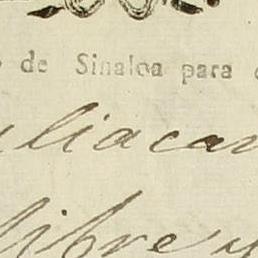 de Sinaloa para
uliacan
libre y